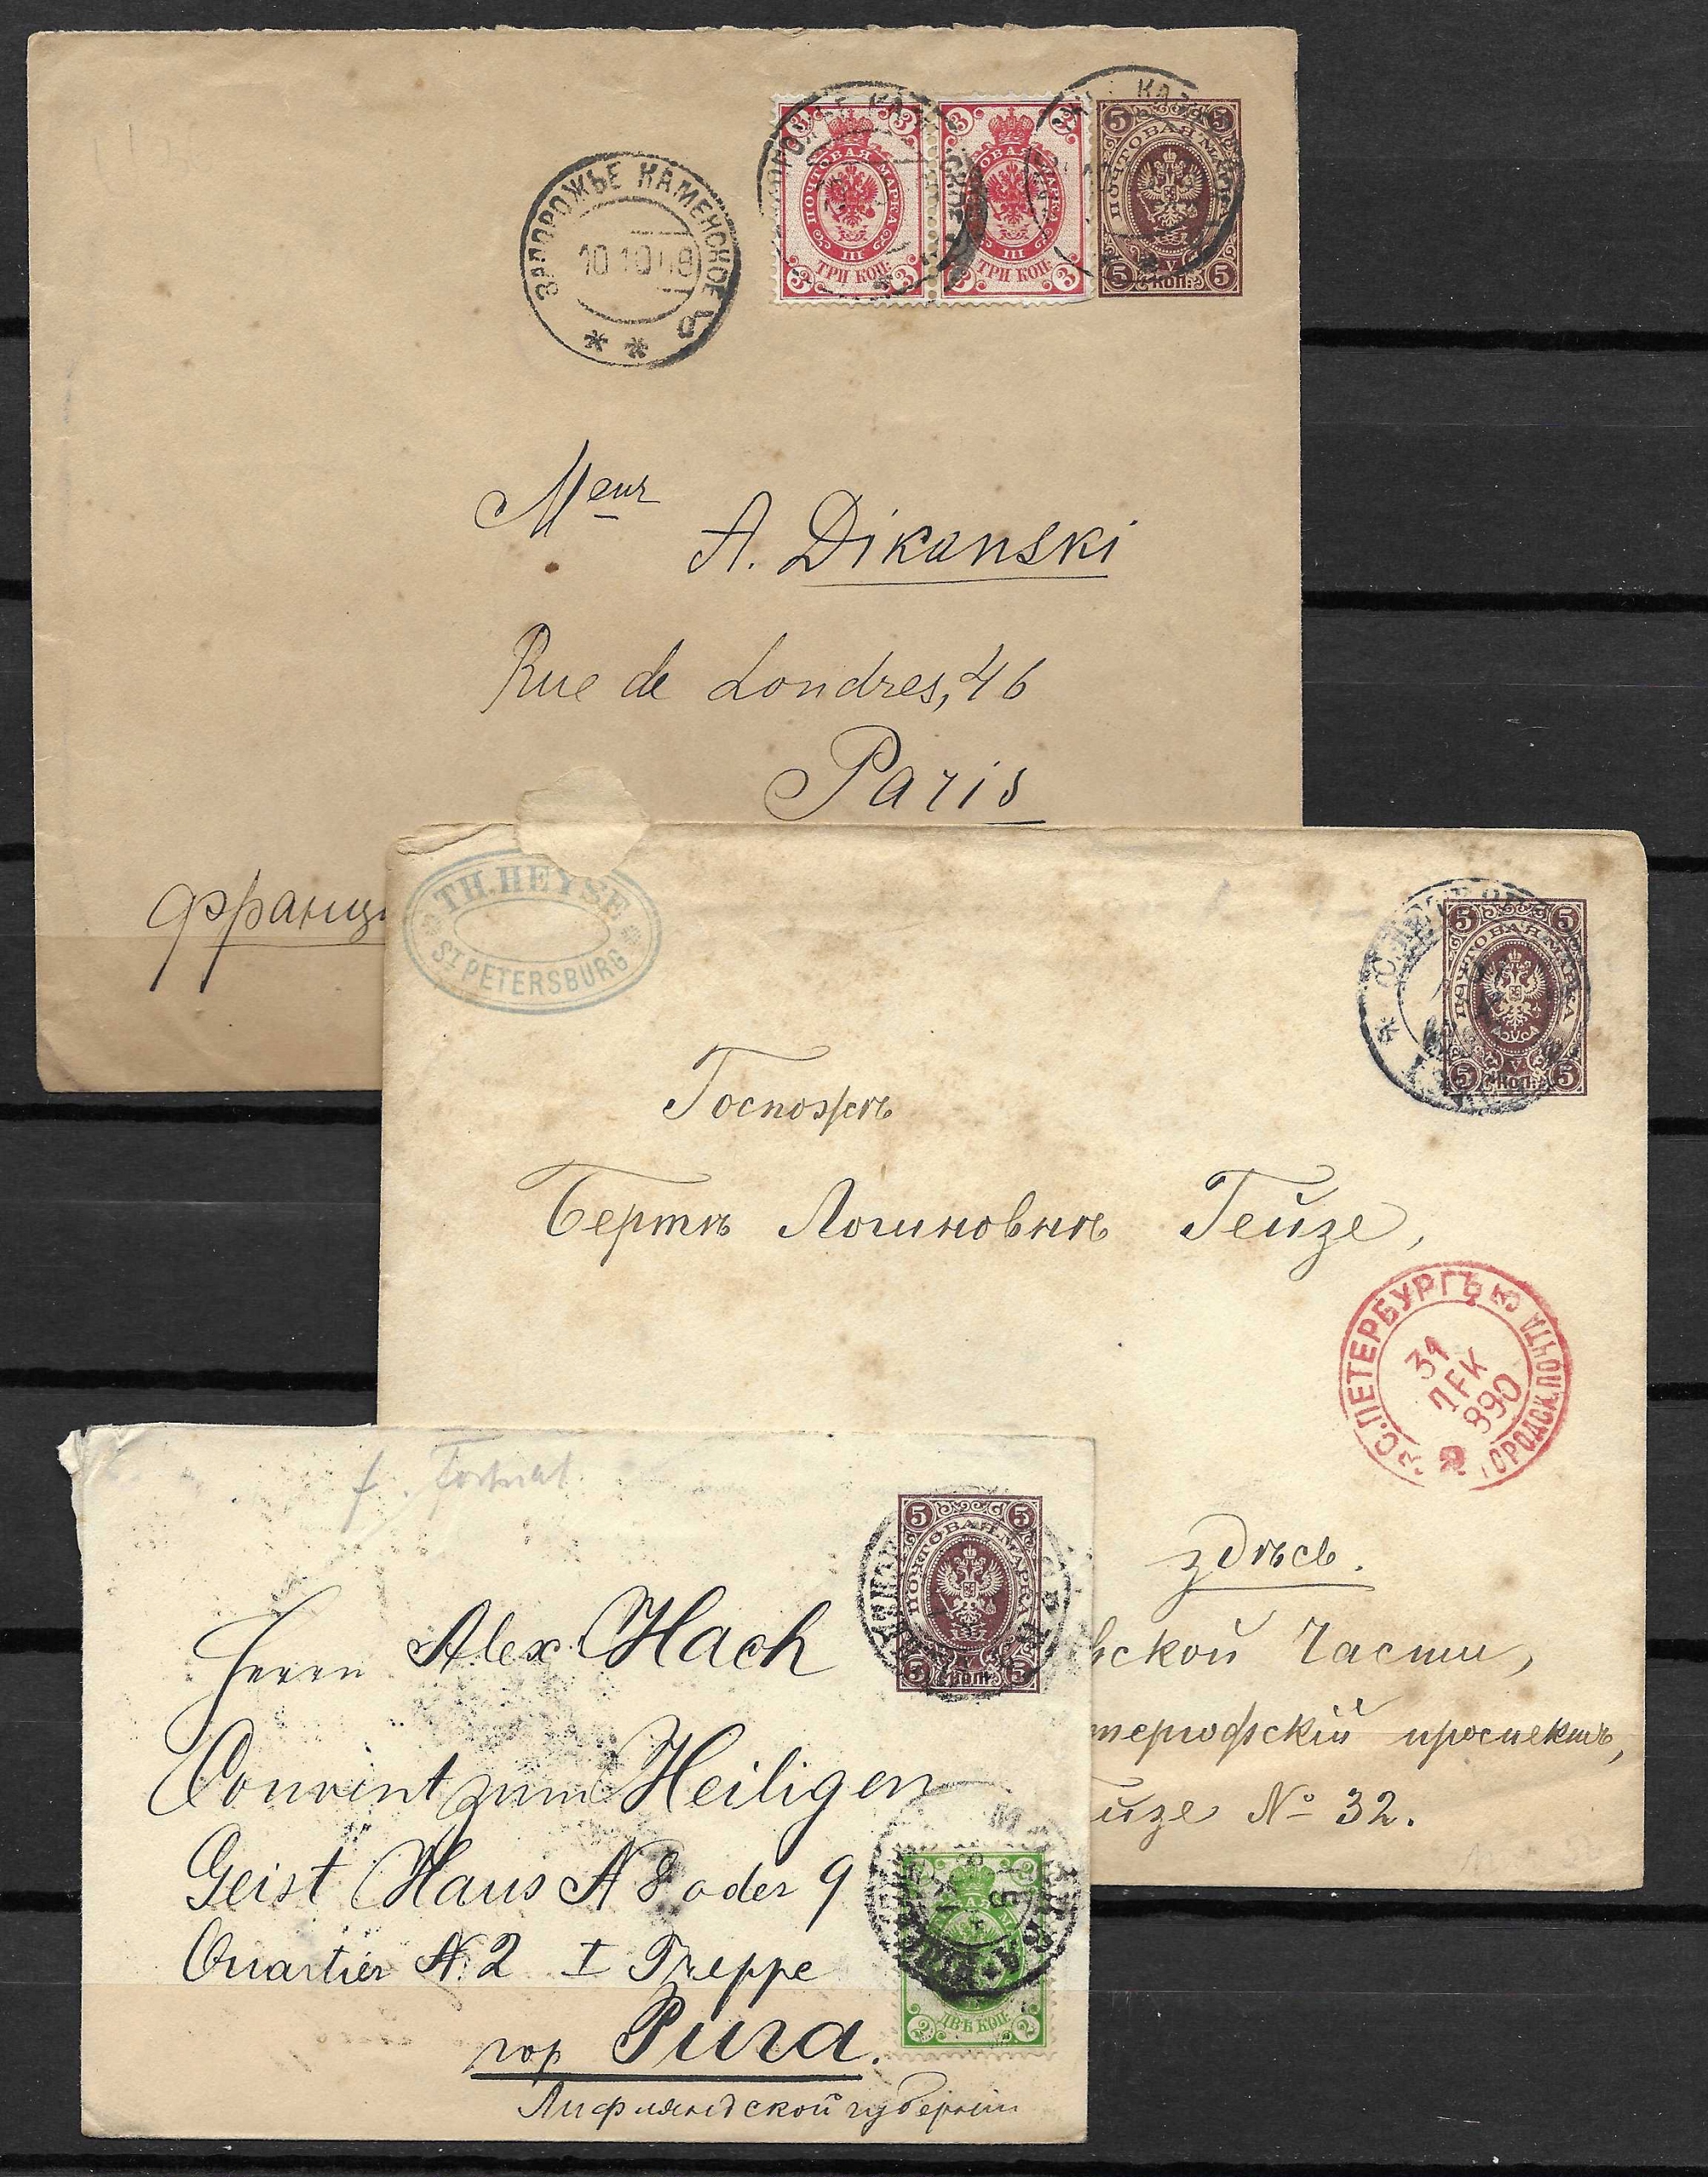 ЗАПОРОЖЬЕ КАМЕНСКОЕ
10 10 08
3 3
ПОЧТОВАЯ МАРКА
III
ТРИ КОП.
3 3
3 3
ПОЧТОВАЯ МАРКА
III
ТРИ КОП.
3 3
5 5
ПОЧТОВАЯ МАРКА
V
5 КОП. 5
Meur
A. Dikanski
Rue de Londres, 46
Paris
Франц
TH. HEYSE
ST PETERSBURG
5 5
ПОЧТОВАЯ МАРКА
V
5 КОП. 5
Госпожѣ
Бертѣ Логиновнѣ Гейзе,
С. ПЕТЕРБУРГЪ
ГОРОДСК. ПОЧТА
31
ДЕК
890
здѣсь.
вской Части,
тергофскій проспектъ,
йзе № 32.
5 5
ПОЧТОВАЯ МАРКА
5 КОП. 5
Herrn Alex. Hach
Convent zum Heiligen
Geist Haus N 8 oder 9
Quartier N. 2 I Treppe
гор Рига.
Лифляндской губерніи
2 2
2 ДВѢ КОП. 2